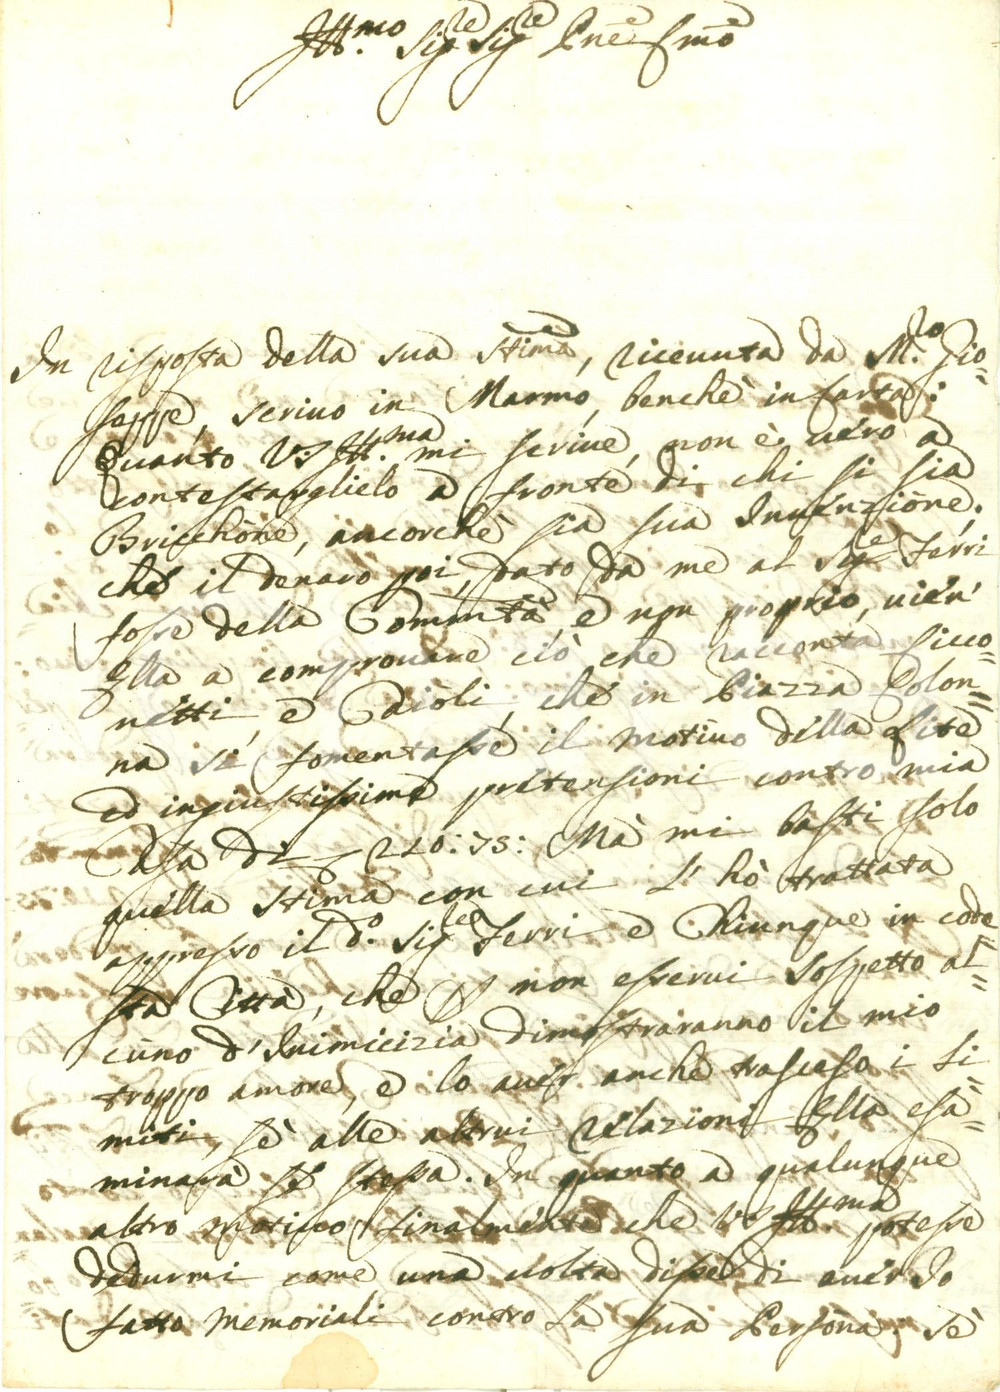 Ill.mo Sig.re Sig.re Pne Smo
In risposta della sua stima, riceuuta da M.ro Gio=
seppe, scriuo in Marmo, benchè in carta:
Quanto V:S: Ill.ma mi scriue, non è uero a
contestarglielo a fronte di chi si sia
Bricchone, ancorchè sia sua Inuenzione.
chè il denaro poi, dato da me al Sig.re Ferri
fosse della Commtà e non proprio, uien'
Ella a comprouare ciò che racconta Cicco=
netti, e Caioli, che in Piazza Colon=
na si fomentasse il motiuo della Lite
ed ingiustissime pretensioni contro mia
Casa di 220:75: Mà mi basti solo
quella stima con cui L'hò trattata
appresso il d.o Sig.re Ferri e Chiunque in code=
sta Città, che non esserui sospetto al=
cuno d'Inimicizia dimostraranno il mio
troppo amore, e lo auer anche trascaso i Li=
miti, sè alle altrui relazioni Ella esa=
minarà sè stessa. In quanto a qualunque
altro motiuo finalmente che V:S: Ill.ma potesse
dedurmi come una uolta disse di auer Io
fatto memoriali contro la sua Persona, sè